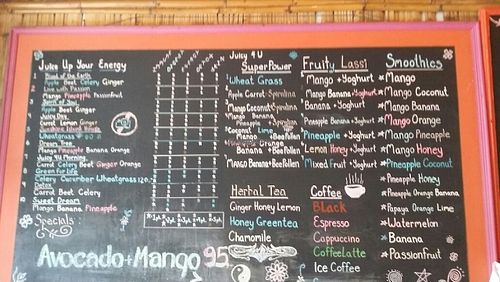 Juice Up Your Energy
Blood of the Earth
Apple Beet Celery Ginger
Live with Passion
Mango Pineapple Passionfruit
Spirit of You
Apple Beet Ginger
Juicy Day
Carrot Lemon Ginger
Wheatgrass
Dream Tree
Mango Pineapple Banana Orange
Juicy 4U Morning
Carrot Celery Beet Ginger Orange
Green For Life
Celery Cucumber Wheatgrass 120.-
Detox
Carrot Beet Celery
Sweet Dream
Mango Banana Pineapple
Specials
Avocado + Mango 95
Juicy 4 U
SuperPower
Wheat Grass
Apple Carrot Spirulina
Mango Coconut Spirulina
Mango Banana
Pineapple + Spirulina
Coconut Lime
Mango + BeePollen
Pineapple Orange
Banana + BeePollen
Mango Banana + BeePollen
Herbal Tea
Ginger Honey Lemon
Honey Greentea
Chamomile
Fruity Lassi
Mango + Yoghurt
Mango Banana + Yoghurt
Banana + Yoghurt
Pineapple + Yoghurt
Lemon Honey + Yoghurt
Mixed Fruit + Yoghurt
Coffee
BLACK
Espresso
Cappuccino
CoffeeLatte
Ice Coffee
Smoothies
* Mango
* Mango Coconut
* Mango Banana
* Mango Orange
* Mango Pineapple
* Mango Honey
* Pineapple Coconut
* Pineapple Honey
* Pineapple Orange Banana
* Papaya Orange Lime
* Watermelon
* Banana
* Passionfruit